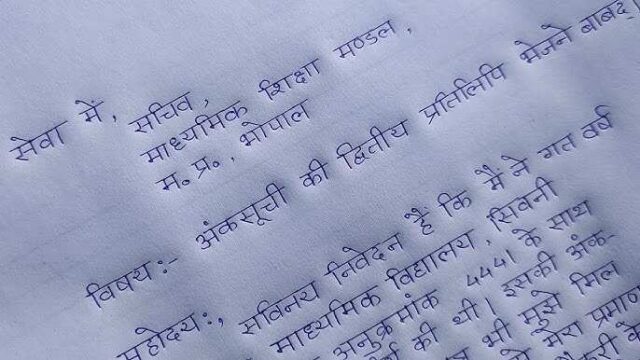 सेवा में, सचिव,
माध्यमिक शिक्षा मण्डल,
म. प्र., भोपाल
विषय:- अंकसूची की द्वितीय प्रतिलिपि भेजने बाबद्।
महोदय:, सविनय निवेदन है कि मैं ने गत वर्ष
माध्यमिक विद्यालय, सिवनी
अनुक्रमांक 4441 के साथ
की थी। इसकी अंक-
भी मुझे मिल
मेरा प्रमाण